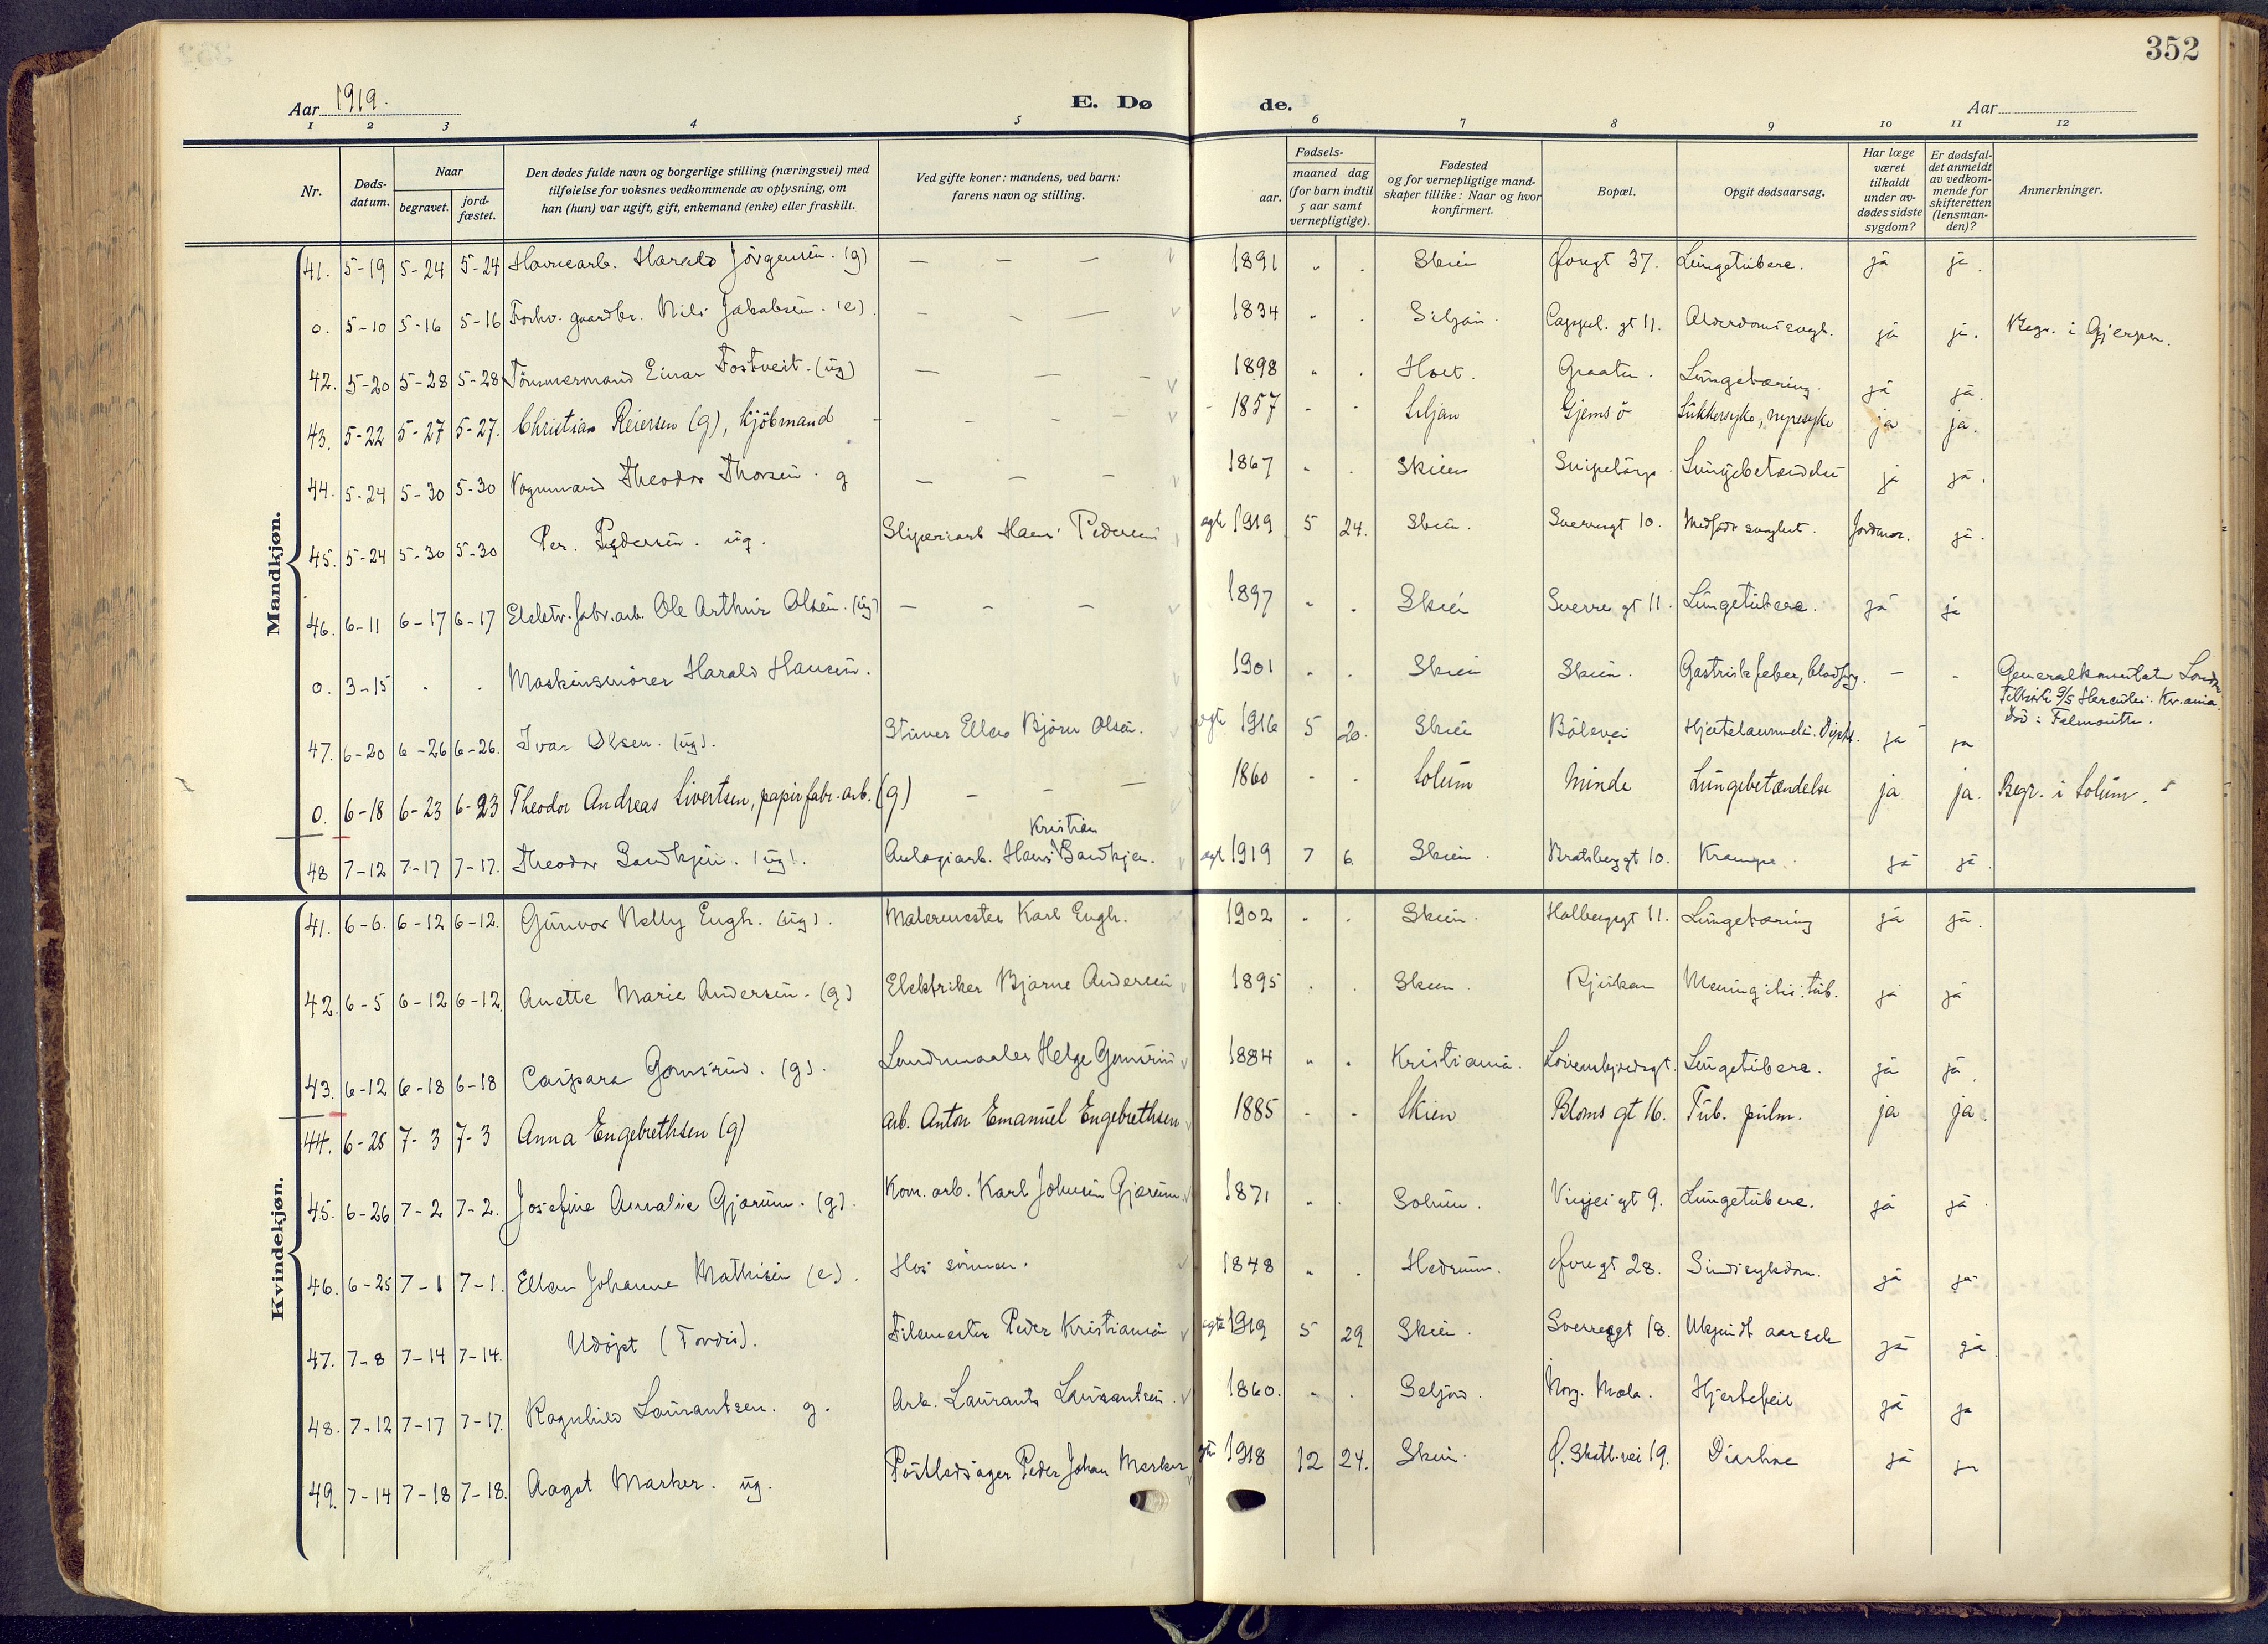 352
Aar 1919.
E. Dø de.
Aar
1 2 3 4 5 6 7 8 9 10 11 12
Nr.
Døds-datum.
Naar
begravet.
jord-fæstet.
Den dødes fulde navn og borgerlige stilling (næringsvei) med
tilføielse for voksnes vedkommende av oplysning, om
han (hun) var ugift, gift, enkemand (enke) eller fraskilt.
Ved gifte koner: mandens, ved barn:
farens navn og stilling.
Fødsels-
aar.
maaned dag
(for barn indtil
5 aar samt
vernepligtige).
Fødested
og for vernepligtige mand-
skaper tillike: Naar og hvor
konfirmert.
Bopæl.
Opgit dødsaarsag.
Har læge
været
tilkaldt
under av-
dødes sidste
sygdom?
Er dødsfal-
det anmeldt
av vedkom-
mende for
skifteretten
(lensman-
den)?
Anmerkninger.
Mandkjøn.
41. 5-19 5-24 5-24 Havnearb. Harald Jörgensen. (g) — — — 1891 Skien Øvregt 37. Lungetuberc. ja ja.
0. 5-10 5-16 5-16 Forhv. gaardbr. Nils Jakobsen. (e) — — — 1834 Siljan. Cappel. gt 11. Alderdomssvagh. ja ja. Begr. i Gjerpen.
42. 5-20 5-28 5-28 Tömmermand Einar Fostveit. (ug) — — — 1898 Holt. Graaten. Lungetæring. ja ja.
43. 5-22 5-27 5-27. Christian Reiersen (g), kjöbmand - - - - 1857 Siljan Gjemsö Sukkersyke, nyresyke ja ja.
44. 5-24 5-30 5-30 Vognmand Theodor Thorsen. g — — — 1867 Skien Snipetorp. Lungebetændelse ja ja.
45. 5-24 5-30 5-30 Per. Pedersen. ug. Sliperiarb Hans Pedersen agte 1919 5 24. Skien. Sverresgt 10. Medfødt svaghet. Jordmor. ja.
46. 6-11 6-17 6-17 Elektr. fabr. arb. Ole Arthur Olsen. (ug) — - — 1897 Skien Sverresgt 11. Lungetuberc. ja ja
0. 3-15 . . Maskinsmörer Harald Hansen. 1901 Skien Skien. Gastrisk feber, — - Generalkonsulatet London
Tilhörte S/S Hercules. Kr.ania.
Död i Falmouth.
47. 6-20 6-26 6-26. Ivar Olsen. (ug). Stuver Bjørn Olsen. agte 1916 5 20. Skien Bölevei ja ja
0. 6-18 6-23 6-23 Theodor Andreas Sivertsen, papirfabr. arb. (g) — - — 1860 Solum Minde Lungebetændelse ja ja. Begr. i Solum.
48 7-12 7-17 7-17. Theodor Sandkjen. (ug). Anlægsarb. Hans Kristian Sandkjen. agt 1919 7 6. Skien. Bratsberggt 10. Krampe. ja ja.
Kvindekjøn.
41. 6-6. 6-12 6-12. Gunvor Nelly Engh. (ug). Malermester Karl Engh. 1902 Skien. Holbergsgt 11. Lungetæring ja ja.
42. 6-5 6-12 6-12. Anette Marie Andersen. (g) Elektriker Bjarne Andersen 1895 Skien. Rjukan Meningitis tub. ja ja
43. 6-12 6-18 6-18 Caspara Gomsrud. (g). Landmaaler Helge Gomsrud 1884 Kristiania. Løvenskjoldsgt. Lungetuberc. ja ja.
44. 6-25 7-3 7-3 Anna Engebrethsen (g) arb. Anton Emanuel Engebrethsen 1885 Skien Bloms gt 16. Tub. pulm. ja ja.
45. 6-26 7-2 7-2. Josefine Amalie Gjærum. (g). Kom. arb. Karl Johnsen Gjærum. 1871 Solum. Vinjesgt 9. Lungetuberc. ja ja
46. 6-25 7-1 7-1. Ellen Johanne Mathisen (e). Hos sönnen. 1848 Hedrum. Øvregt 28. Sindssygdom. ja ja
47. 7-8 7-14 7-14. Udöpt (Tordis). Filemester Peder Kristiansen agte 1919 5 29 Skien. Sverresgt 18. Ukjendt aarsak ja ja.
48. 7-12 7-17 7-17. Ragnhild Laurantsen. g. Arb. Laurants Laurantsen. 1860. Seljord. Hjertefeil ja ja
49. 7-14 7-18 7-18. Aagot Marker. ug. Postledsager Peder Johan Marker gte 1918 12 24. Skien. Ø. Skott.vei 19. Diarhoe ja ja